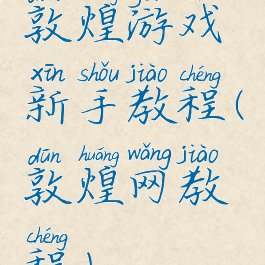 敦煌游戏
xīn shǒu jiào chéng
新手教程(
dūn huáng wǎng jiào
敦煌网教
chéng
程)